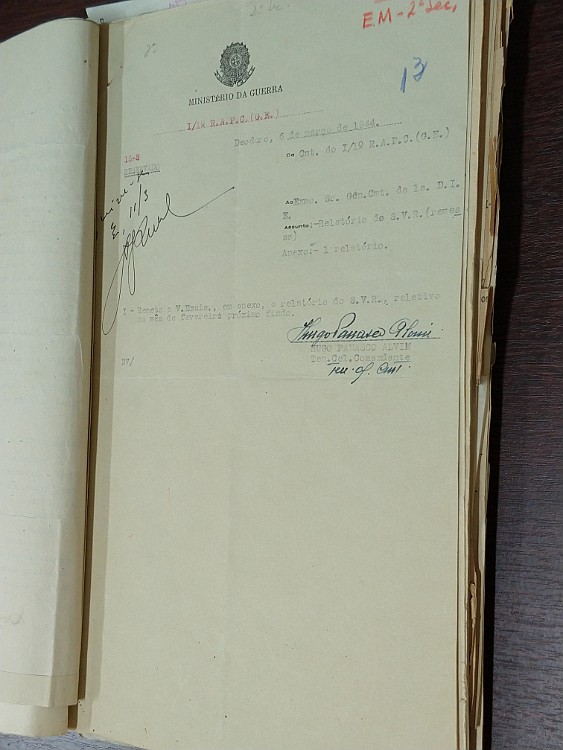 2ª Sec.
E.M - 2ª Sec,
2º
13
MINISTÉRIO DA GUERRA
I/19 R.A.P.C.(G.E.)
Deodro, 6 de março de 1944.
15-S
Do Cmt. do I/19 R.A.P.C.(G.E.)
11/3
Ao Exmo. Sr. Gen.Cmt. de 1a. D.I.
E.
Assunto:-Relatório de S.V.R.(remes
sa)
Anexo:- 1 relatório.
I - Remeto a V.Excia., em anexo, o relatório do S.V.R., relativo
ao mês de fevereiro próximo findo.
Hugo Panasco Alvim
HUGO PANASCO ALVIM
Ten.Cel.Comandante
DV/